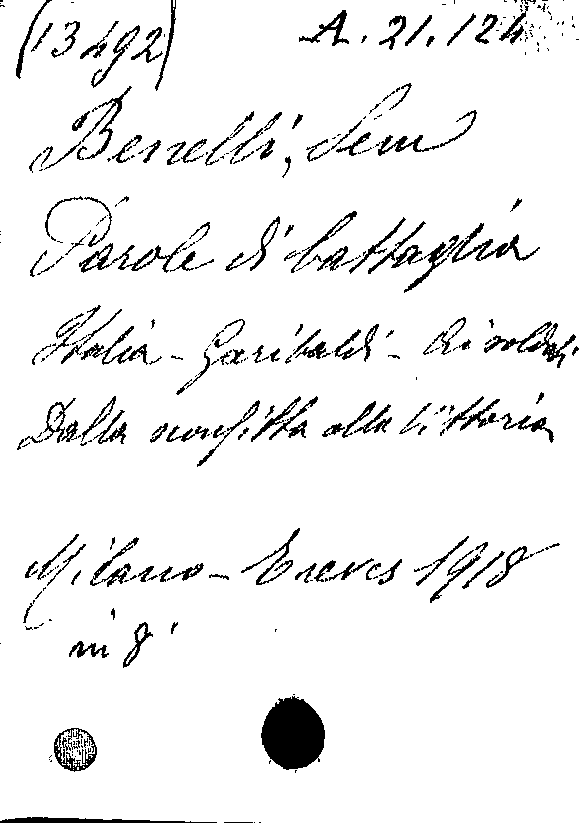 (13492) A.21.124
Benelli, Sem
Parole di battaglia
Italia - Garibaldi - Ai soldati
Dalla sconfitta alla vittoria
Milano - Treves 1918
in 8°